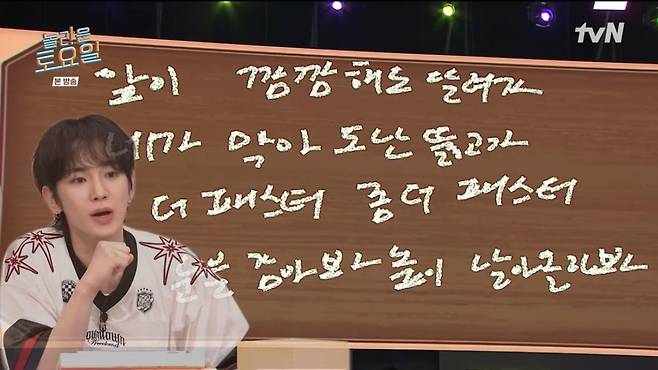 놀라운
토요일
본 방송
tvN
앞이 깜깜해도 뚫어자
네가 막아도 난 뚫고가
더 패스터 좀 더 패스터
눈을 감아보라 높이 날아올라봐